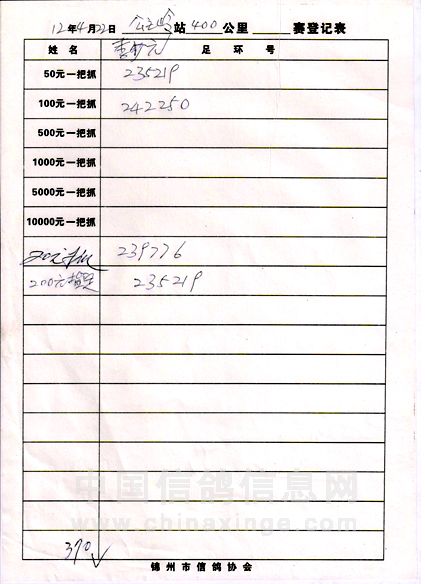 12年4月22日 公主岭站400公里 赛登记表
姓名 足环号
50元一把抓 235219
100元一把抓 242250
500元一把抓
1000元一把抓
5000元一把抓
10000元一把抓
239776
200元指定 235219
370
中国信鸽信息网
www.chinaxinge.com
锦州市信鸽协会